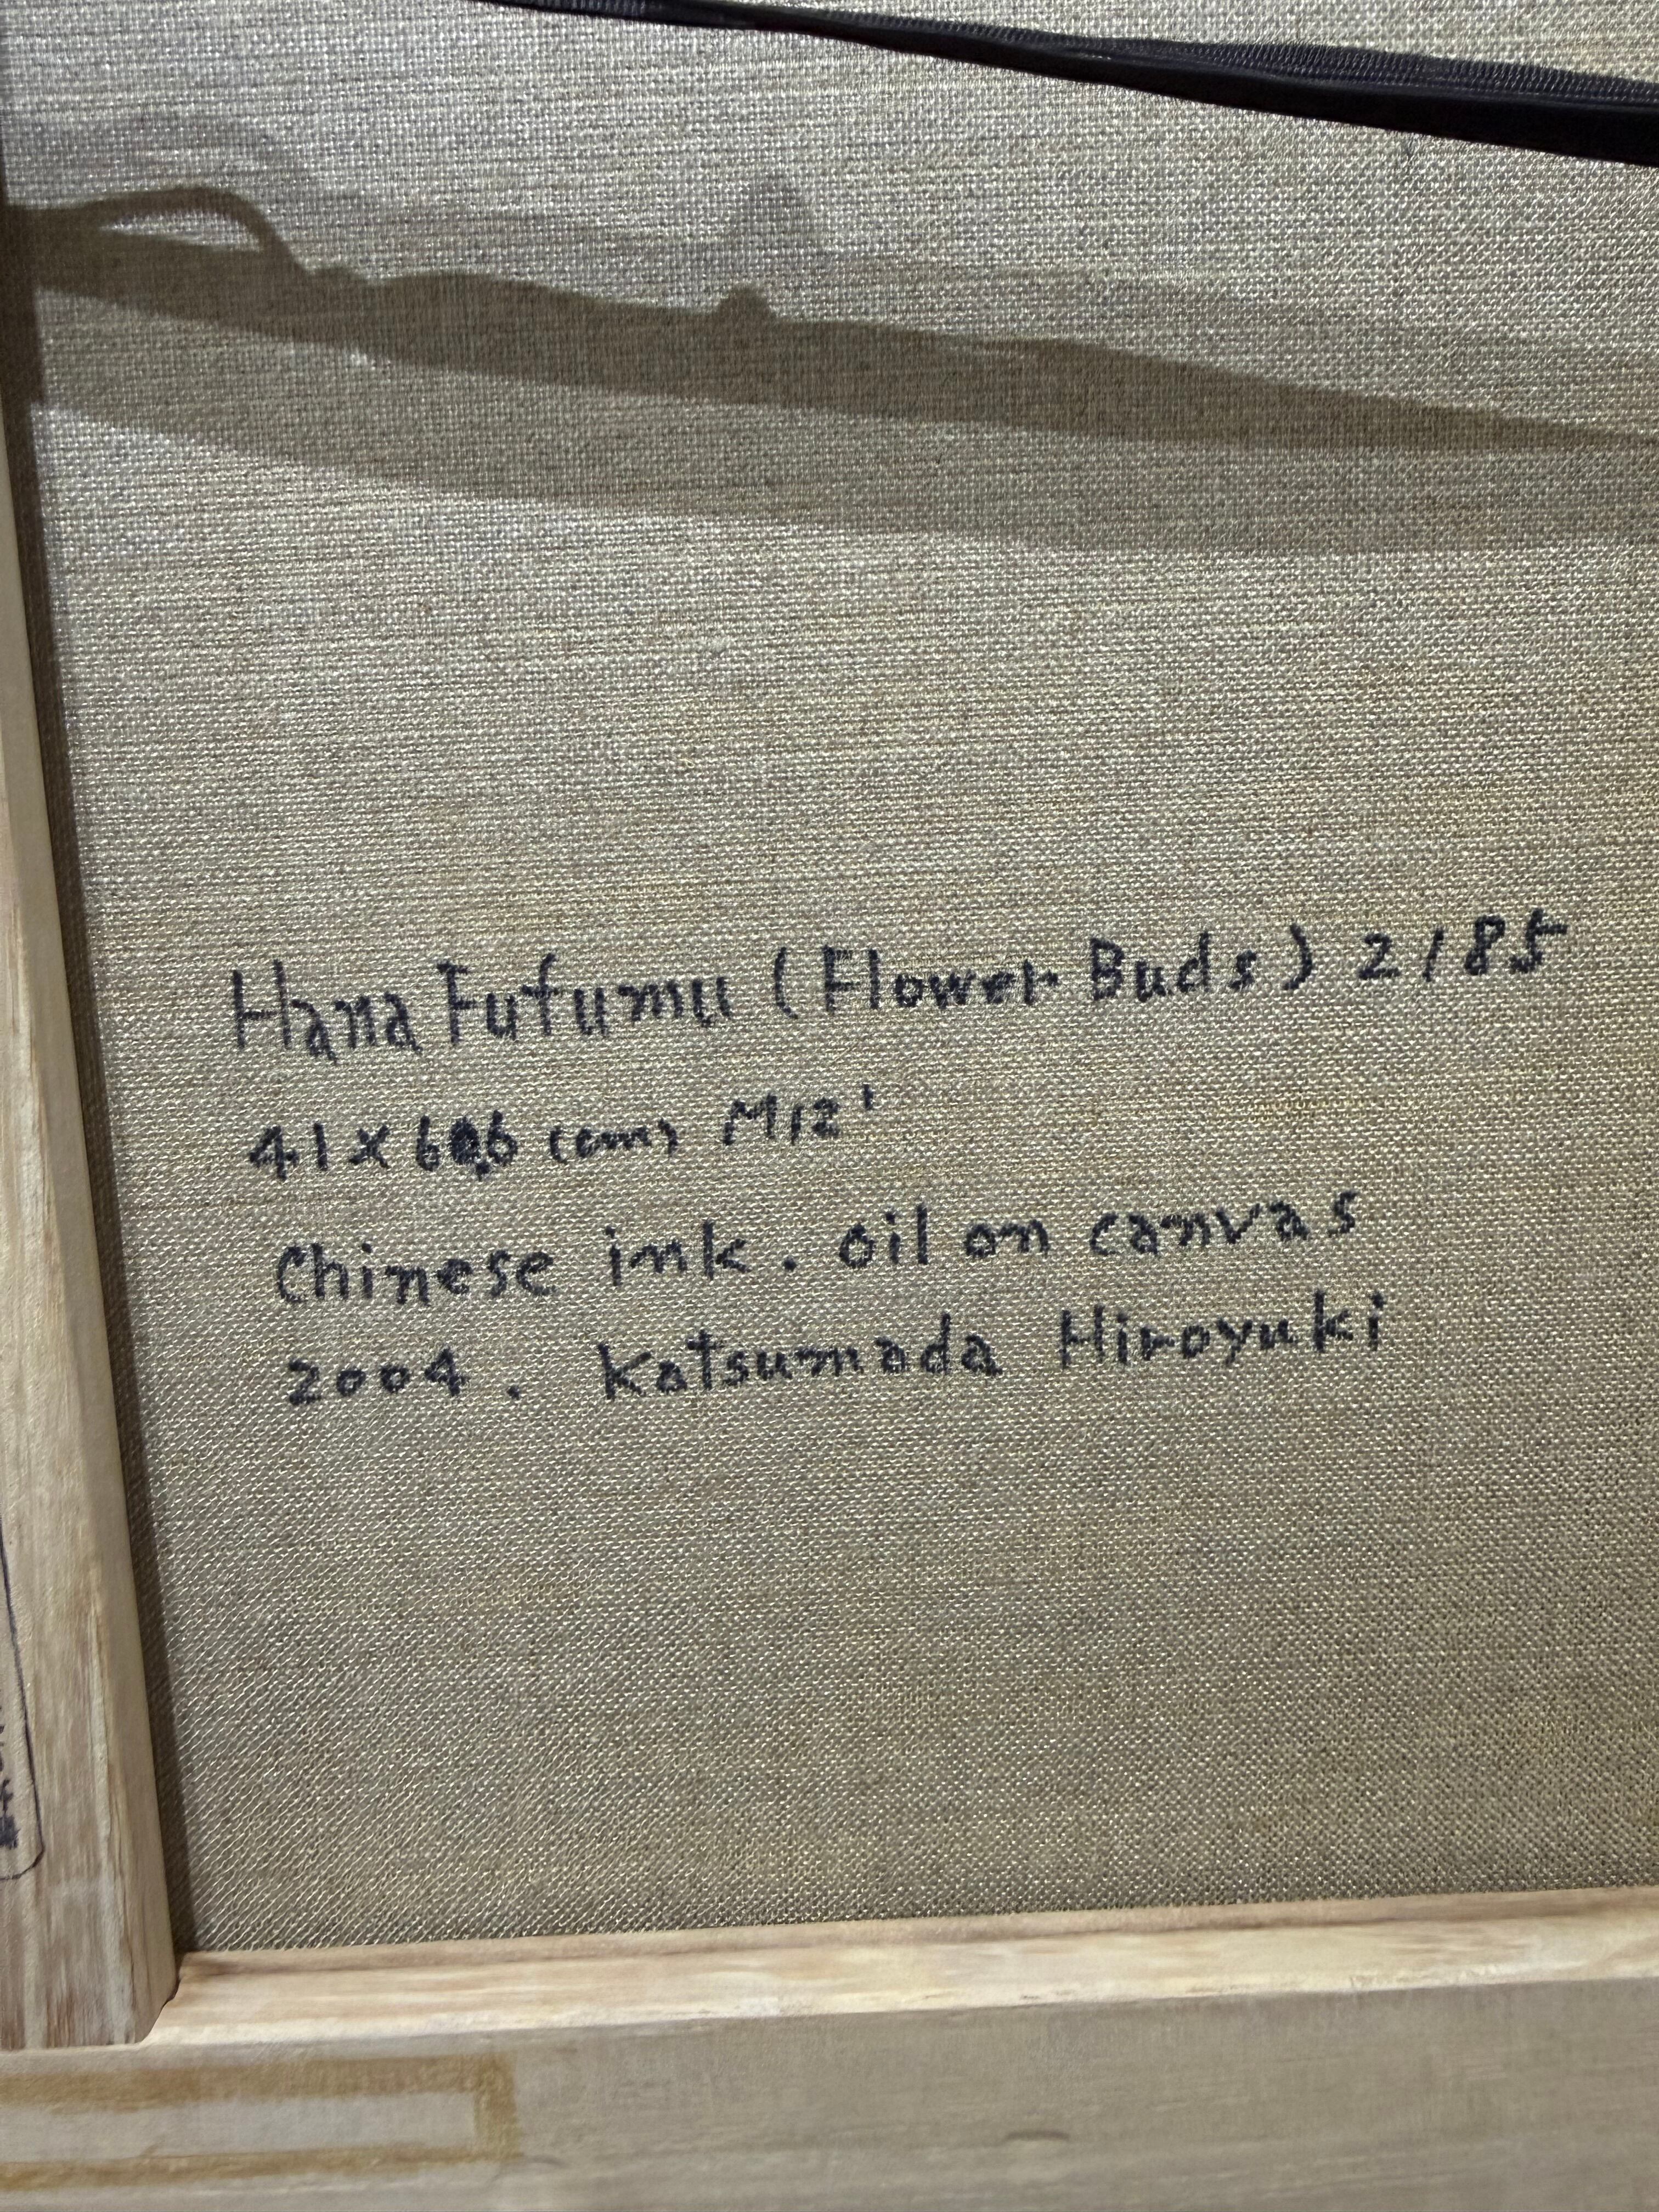 Hana Fufumu (Flower Buds) 2185
41×60.6 (cm) M12'
Chinese ink. oil on canvas
2004. Katsumada Hiroyuki